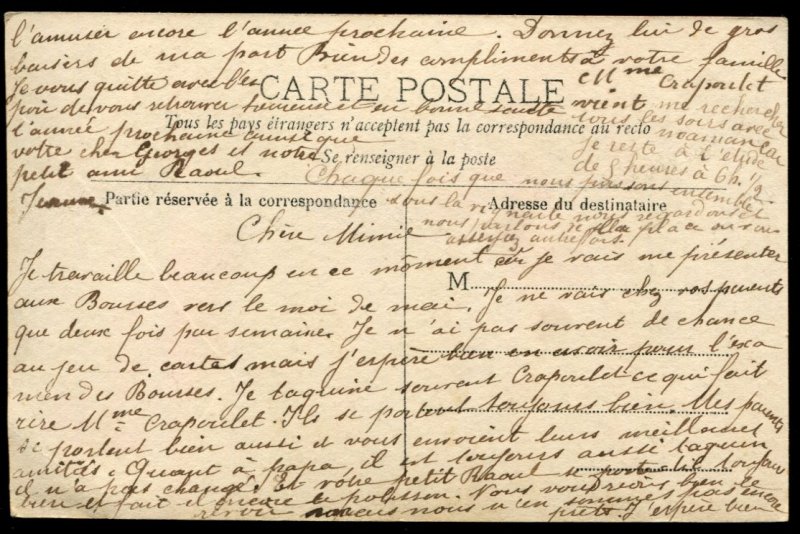 l'amuser encore l'année prochaine. Donnez lui de gros
baisers de ma part Bien des compliments à votre famille
Je vous quitte avec l'es
poir de vous retrouver heureuse et en bonne santé
l'année prochaine ainsi que
votre cher Georges et notre
petit ami Raoul.
Jeanne
CARTE POSTALE
Tous les pays étrangers n'acceptent pas la correspondance au recto
Se renseigner à la poste
Partie réservée à la correspondance
Adresse du destinataire
M
Mme Crapoulet
vient me rechercher
tous les soirs avec
maman car
je reste à l'étude
de 5 heures à 6h. 1/2
Chaque fois que nous passons ensemble
sous la nous regardons et
nous parlons de la place où vous
assez autrefois.
Chère Mimie
Je travaille beaucoup en ce moment car je vais me présenter
aux Bourses vers le moi de mai. Je ne vais chez vos parents
que deux fois par semaine. Je n'ai pas souvent de chance
au jeu de cartes mais j'espère bien en avoir pour l'exa
men des Bourses. Je taquine souvent Crapoulet ce qui fait
rire Mme Crapoulet. Ils se portent toujours bien. Mes parents
se portent bien aussi et vous envoient leurs meilleures
amitiés. Quant à papa, il est toujours aussi taquin
il n'a pas changé. Et votre petit Raoul se porte-t-il toujours
bien et fait il encore le polisson. Nous voudrions bien le
revoir mais nous n'en sommes pas encore
prêts. J'espère bien